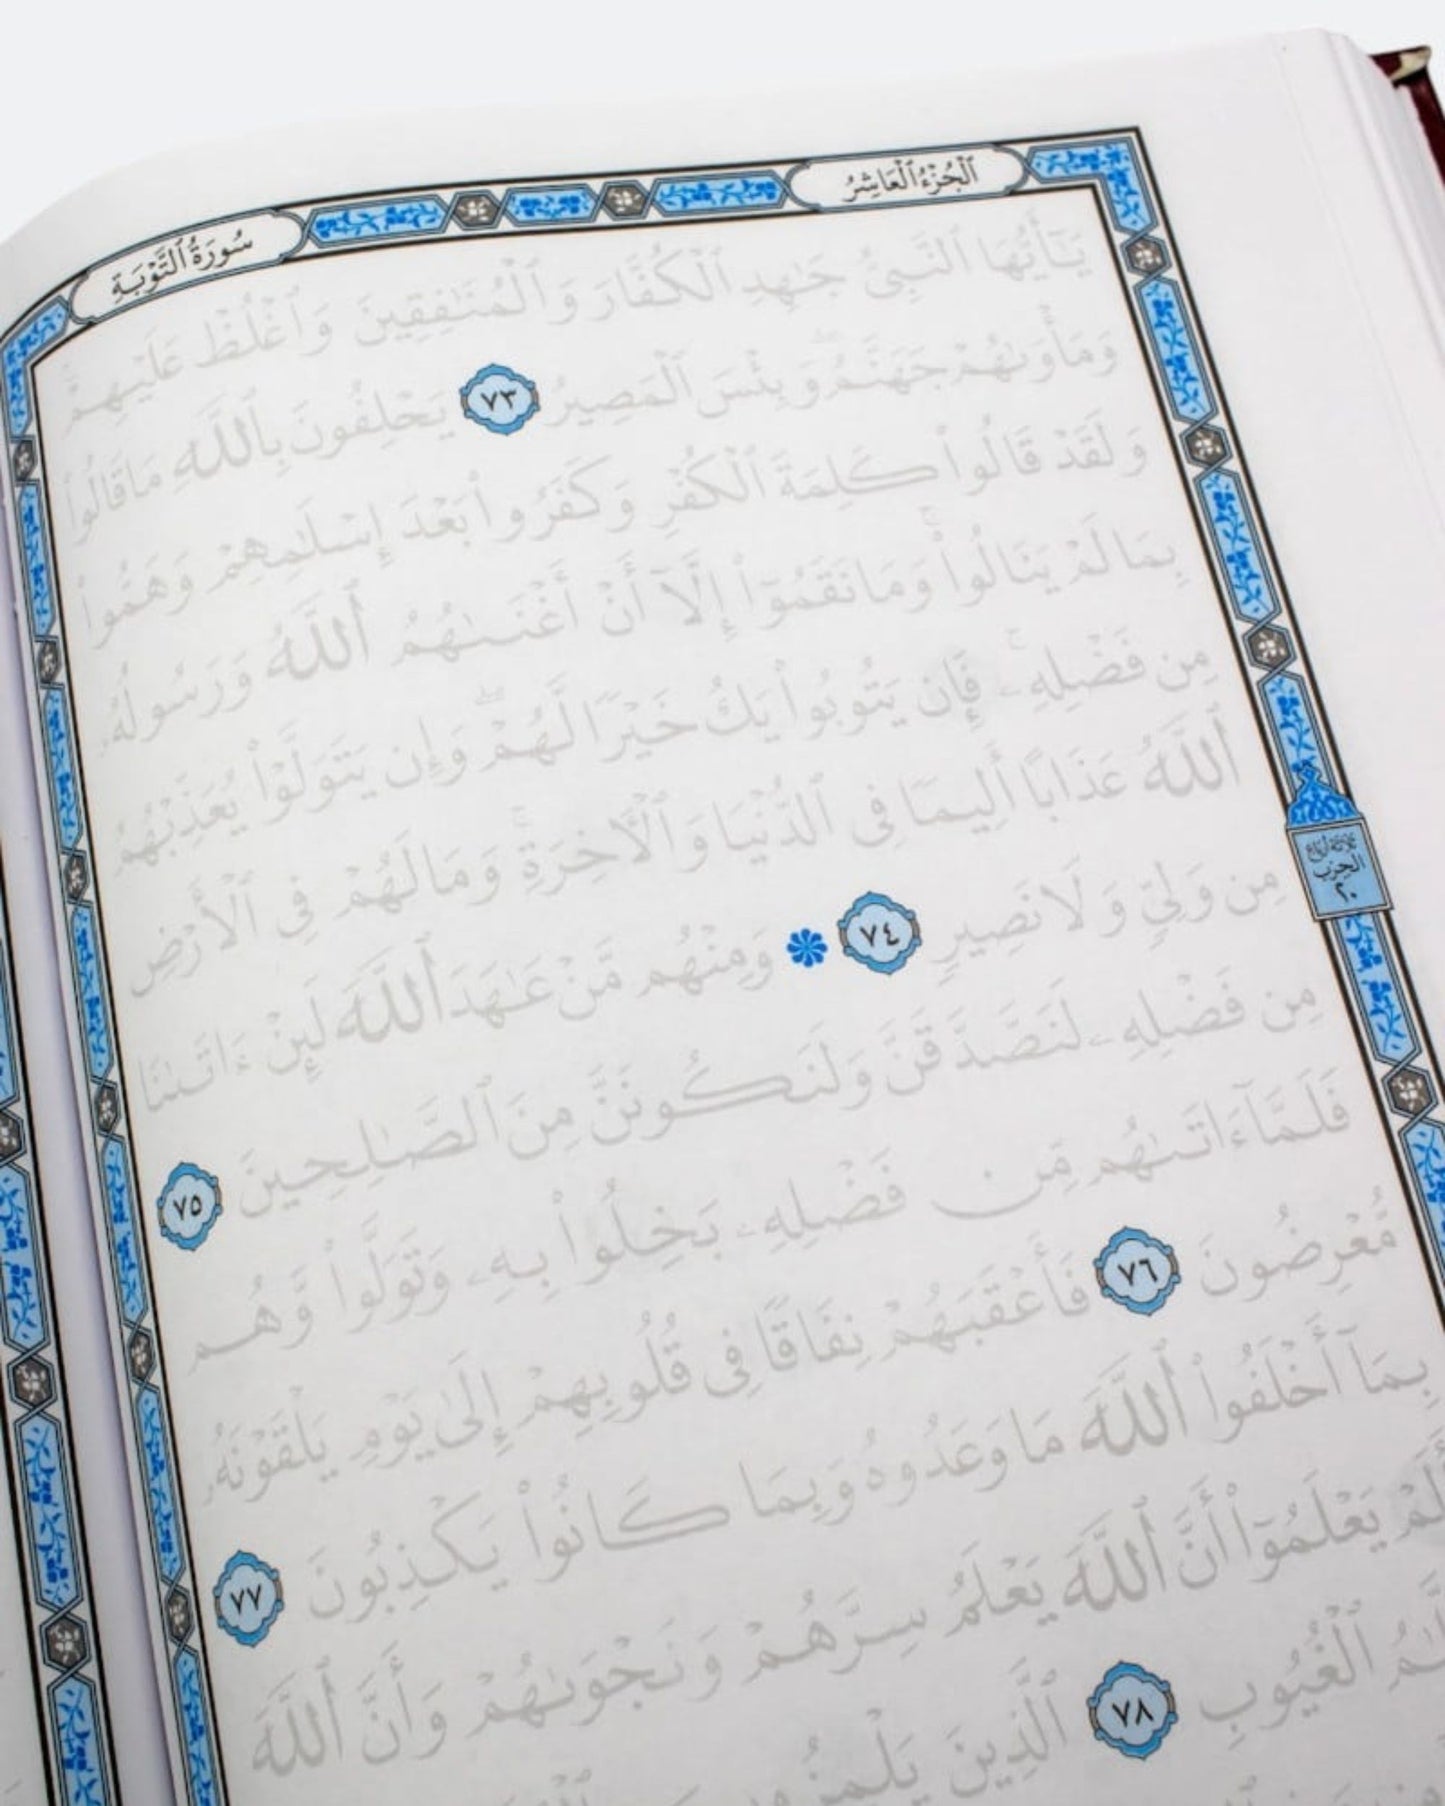 سُورَةُ ٱلتَّوْبَةِ
ٱلْجُزْءُ ٱلْعَاشِرُ
يَٰٓأَيُّهَا ٱلنَّبِىُّ جَٰهِدِ ٱلْكُفَّارَ وَٱلْمُنَٰفِقِينَ وَٱغْلُظْ عَلَيْهِمْ ۚ
وَمَأْوَىٰهُمْ جَهَنَّمُ ۖ وَبِئْسَ ٱلْمَصِيرُ ٧٣ يَحْلِفُونَ بِٱللَّهِ مَا قَالُوا۟
وَلَقَدْ قَالُوا۟ كَلِمَةَ ٱلْكُفْرِ وَكَفَرُوا۟ بَعْدَ إِسْلَٰمِهِمْ وَهَمُّوا۟
بِمَا لَمْ يَنَالُوا۟ ۚ وَمَا نَقَمُوٓا۟ إِلَّآ أَنْ أَغْنَىٰهُمُ ٱللَّهُ وَرَسُولُهُۥ
مِن فَضْلِهِۦ ۚ فَإِن يَتُوبُوا۟ يَكُ خَيْرًا لَّهُمْ ۖ وَإِن يَتَوَلَّوْا۟ يُعَذِّبْهُمُ
ٱللَّهُ عَذَابًا أَلِيمًا فِى ٱلدُّنْيَا وَٱلْءَاخِرَةِ ۚ وَمَا لَهُمْ فِى ٱلْأَرْضِ
مِن وَلِىٍّ وَلَا نَصِيرٍ ٧٤ وَمِنْهُم مَّنْ عَٰهَدَ ٱللَّهَ لَئِنْ ءَاتَىٰنَا
مِن فَضْلِهِۦ لَنَصَّدَّقَنَّ وَلَنَكُونَنَّ مِنَ ٱلصَّٰلِحِينَ ٧٥
فَلَمَّآ ءَاتَىٰهُم مِّن فَضْلِهِۦ بَخِلُوا۟ بِهِۦ وَتَوَلَّوا۟ وَّهُم
مُّعْرِضُونَ ٧٦ فَأَعْقَبَهُمْ نِفَاقًا فِى قُلُوبِهِمْ إِلَىٰ يَوْمِ يَلْقَوْنَهُۥ
بِمَآ أَخْلَفُوا۟ ٱللَّهَ مَا وَعَدُوهُ وَبِمَا كَانُوا۟ يَكْذِبُونَ ٧٧
أَلَمْ يَعْلَمُوٓا۟ أَنَّ ٱللَّهَ يَعْلَمُ سِرَّهُمْ وَنَجْوَىٰهُمْ وَأَنَّ ٱللَّهَ
ٱلْغُيُوبِ ٧٨ ٱلَّذِينَ يَلْمِزُونَ
ثلاثة أرباع
الحزب
٢٠